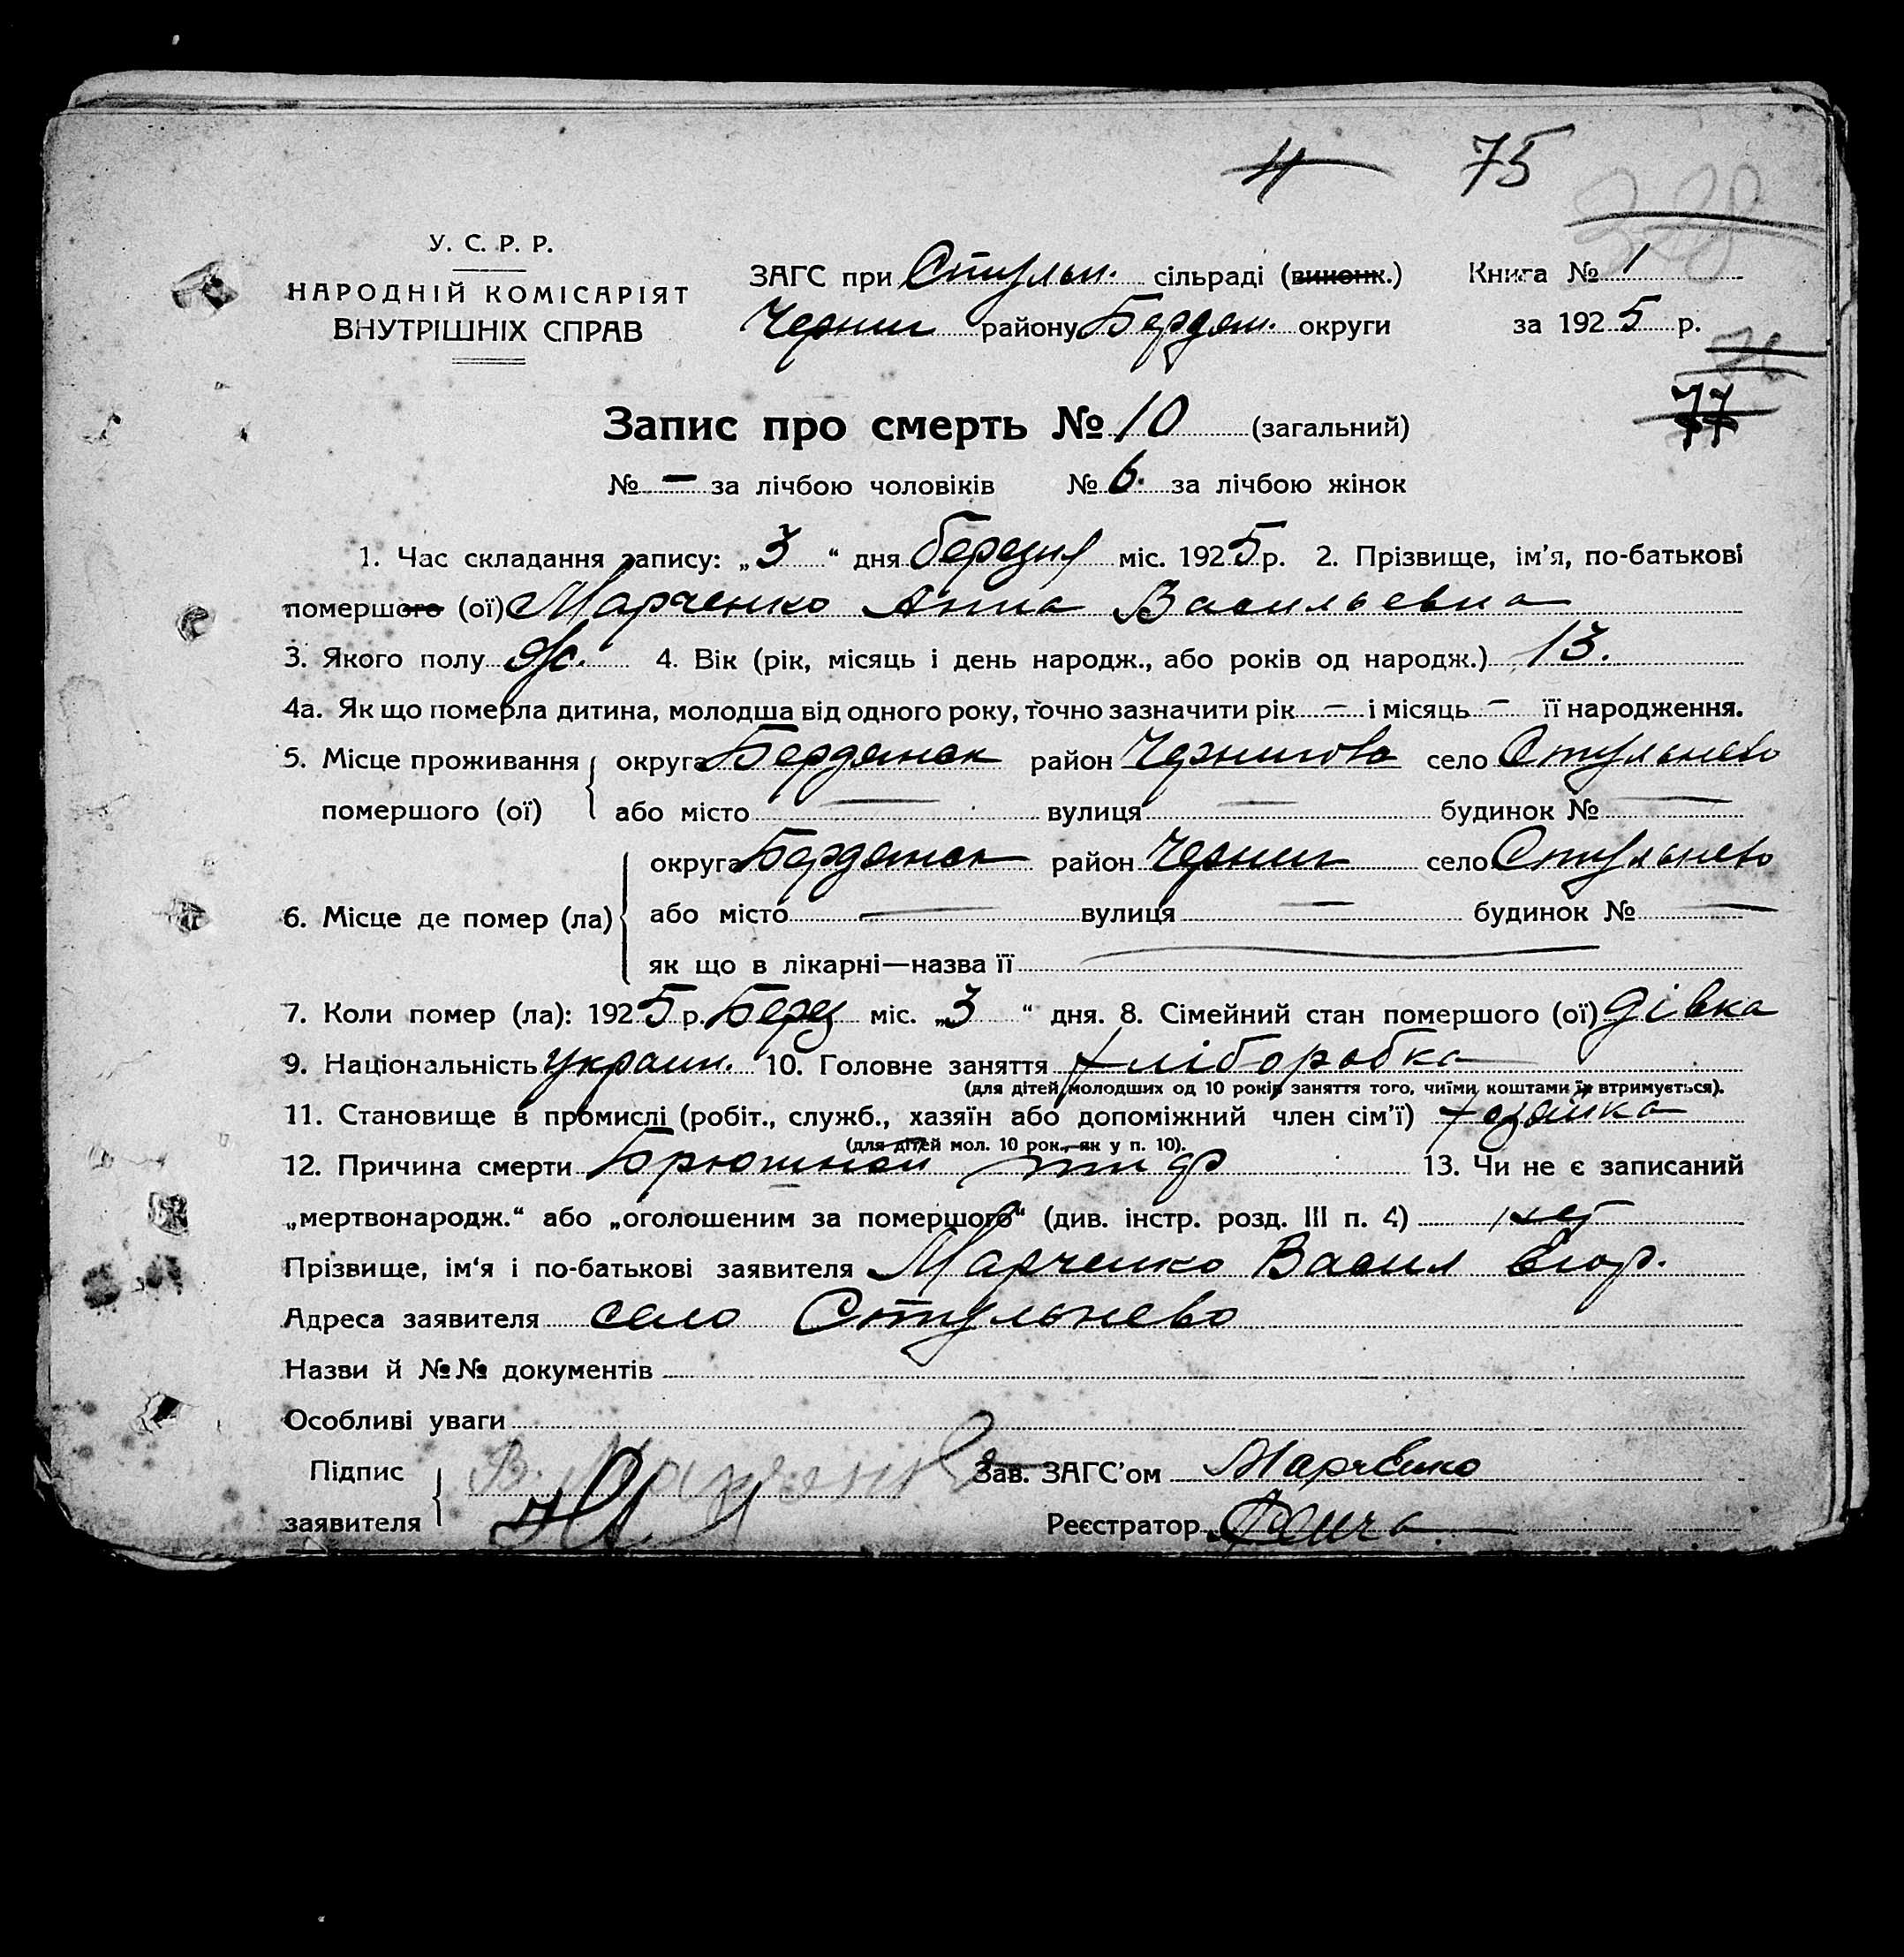 4 75
328
У. С. Р. Р.
НАРОДНІЙ КОМІСАРІЯТ
ВНУТРІШНІХ СПРАВ
ЗАГС при Стульн. сільраді (виконк.) Книга № 1
Черниг району Бердян. округи за 1925 р.
77
Запис про смерть № 10 (загальний)
№ – за лічбою чоловіків № 6. за лічбою жінок
1. Час складання запису: „3“ дня березня міс. 1925 р. 2. Прізвище, ім'я, по-батькові
помершого (ої) Марченко Анна Васильевна
3. Якого полу ж. 4. Вік (рік, місяць і день народж., або років од народж.) 13.
4а. Як що померла дитина, молодша від одного року, точно зазначити рік – і місяць – її народження.
5. Місце проживання округа Бердянск район Чернигово село Стульнево
помершого (ої) або місто — вулиця — будинок № —
округа Бердянск район Черниг село Стульнево
6. Місце де помер (ла) або місто — вулиця — будинок № —
як що в лікарні—назва її —
7. Коли помер (ла): 1925 р. Берез міс. „3“ дня. 8. Сімейний стан помершого (ої) дівка
9. Національність Украин. 10. Головне заняття хліборобка
(для дітей молодших од 10 років заняття того, чиїми коштами їх втримується).
11. Становище в промислі (робіт., служб., хазяїн або допоміжний член сім'ї) хозяйка
(для дітей мол. 10 рок.—як у п. 10).
12. Причина смерти Брюшной тиф 13. Чи не є записаний
„мертвонародж.“ або „оголошеним за помершого“ (див. інстр. розд. III п. 4) нет
Прізвище, ім'я і по-батькові заявителя Марченко Васил Егор.
Адреса заявителя село Стульнево
Назви й №№ документів
Особливі уваги
Підпис В. Марченко Зав. ЗАГС'ом Марченко
заявителя Реєстратор